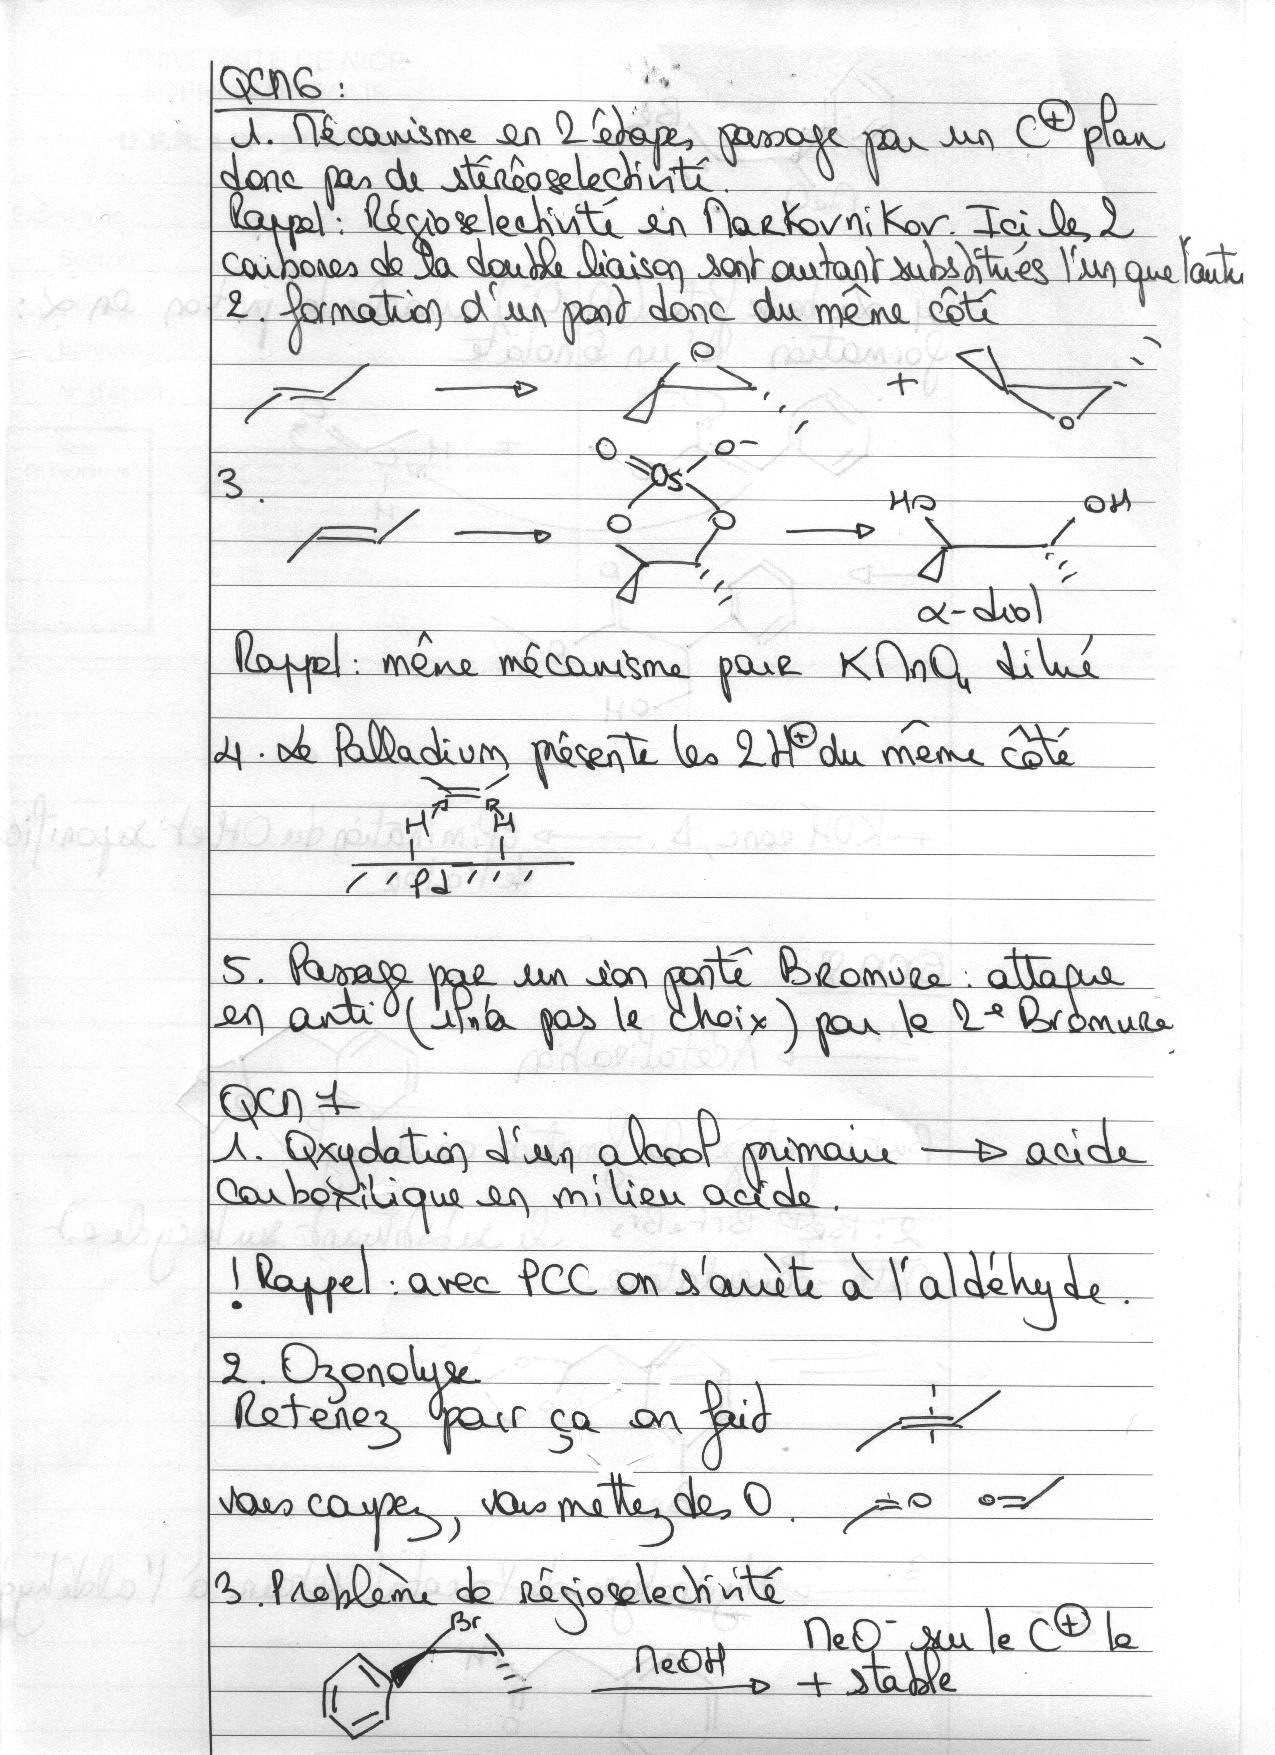 QCM6 :
1. Mécanisme en 2 étapes, passage par un C⊕ plan
donc pas de stéréoselectivité.
Rappel : Régioselectivité en Markovnikov. Ici les 2
carbones de la double liaison sont autant substitués l'un que l'autre
2. formation d'un pont donc du même côté
O + O
O Os O-
3. O O HO OH
α-diol
Rappel : même mécanisme pour KMnO4 dilué
4. Le Palladium présente les 2H⊕ du même côté
H H
Pd
5. Passage par un ion ponté Bromure : attaque
en anti (il n'a pas le choix) par le 2e Bromure
QCM 7
1. Oxydation d'un alcool primaire → acide
carboxilique en milieu acide.
! Rappel : avec PCC on s'arrête à l'aldéhyde.
2. Ozonolyse
Retenez pour ça on fait
vous coupez, vous mettez des O. =O O=
3. Problème de régioselectivité
Br MeOH MeO- sur le C⊕ le
+ stable